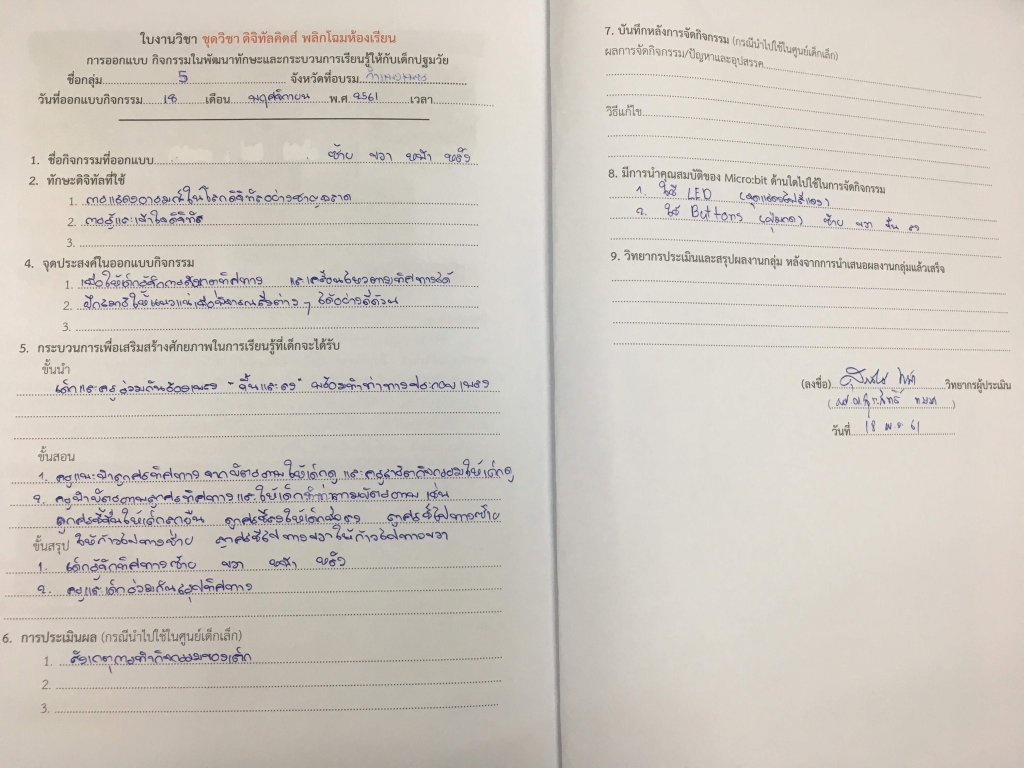 ใบงานวิชา ชุดวิชา ดิจิทัลคิดส์ พลิกโฉมห้องเรียน
การออกแบบ กิจกรรมในพัฒนาทักษะและกระบวนการเรียนรู้ให้กับเด็กปฐมวัย
ชื่อกลุ่ม 5 จังหวัดที่อบรม กำแพงเพชร
วันที่ออกแบบกิจกรรม 18 เดือน พฤศจิกายน พ.ศ. 2561 เวลา
1. ชื่อกิจกรรมที่ออกแบบ ซ้าย ขวา หน้า หลัง
2. ทักษะดิจิทัลที่ใช้
1. การแสดงอารมณ์ในโลกดิจิทัลอย่างชาญฉลาด
2. การรู้และเข้าใจดิจิทัล
3.
4. จุดประสงค์ในออกแบบกิจกรรม
1. เพื่อให้เด็กรู้จักการสังเกตทิศทาง และเคลื่อนไหวตามทิศทางได้
2. ฝึกสมาธิให้แน่วแน่เพื่อพิจารณาสิ่งต่าง ๆ ได้อย่างถี่ถ้วน
3.
5. กระบวนการเพื่อเสริมสร้างศักยภาพในการเรียนรู้ที่เด็กจะได้รับ
ขั้นนำ
เด็กและครูร่วมกันร้องเพลง "ขึ้นและลง" พร้อมทำท่าทางประกอบเพลง
ขั้นสอน
1. ครูแนะนำลูกศรทิศทาง จากบัตรภาพให้เด็กดู และครูสาธิตกิจกรรมให้เด็กดู
2. ครูนำบัตรภาพลูกศรทิศทางและให้เด็กทำท่าตามบัตรภาพ เช่น
ลูกศรชี้ขึ้นให้เด็กลุกยืน ลูกศรชี้ลงให้เด็กนั่งลง ลูกศรชี้ไปทางซ้าย
ให้ก้าวไปทางซ้าย ลูกศรชี้ไปทางขวาให้ก้าวไปทางขวา
ขั้นสรุป
1. เด็กรู้จักทิศทางซ้าย ขวา หน้า หลัง
2. ครูและเด็กร่วมกันสรุปทิศทาง
6. การประเมินผล (กรณีนำไปใช้ในศูนย์เด็กเล็ก)
1. สังเกตุการทำกิจกรรมของเด็ก
2.
3.
7. บันทึกหลังการจัดกิจกรรม (กรณีนำไปใช้ในศูนย์เด็กเล็ก)
ผลการจัดกิจกรรม/ปัญหาและอุปสรรค
วิธีแก้ไข
8. มีการนำคุณสมบัติของ Micro:bit ด้านใดไปใช้ในการจัดกิจกรรม
1. ใช้ LED (จุดแสดงไฟสีแดง)
2. ใช้ Buttons (ปุ่มกด) ซ้าย ขวา ขึ้น ลง
9. วิทยากรประเมินและสรุปผลงานกลุ่ม หลังจากการนำเสนอผลงานกลุ่มแล้วเสร็จ
(ลงชื่อ) วิทยากรผู้ประเมิน
วันที่ 18 พ.ย. 61